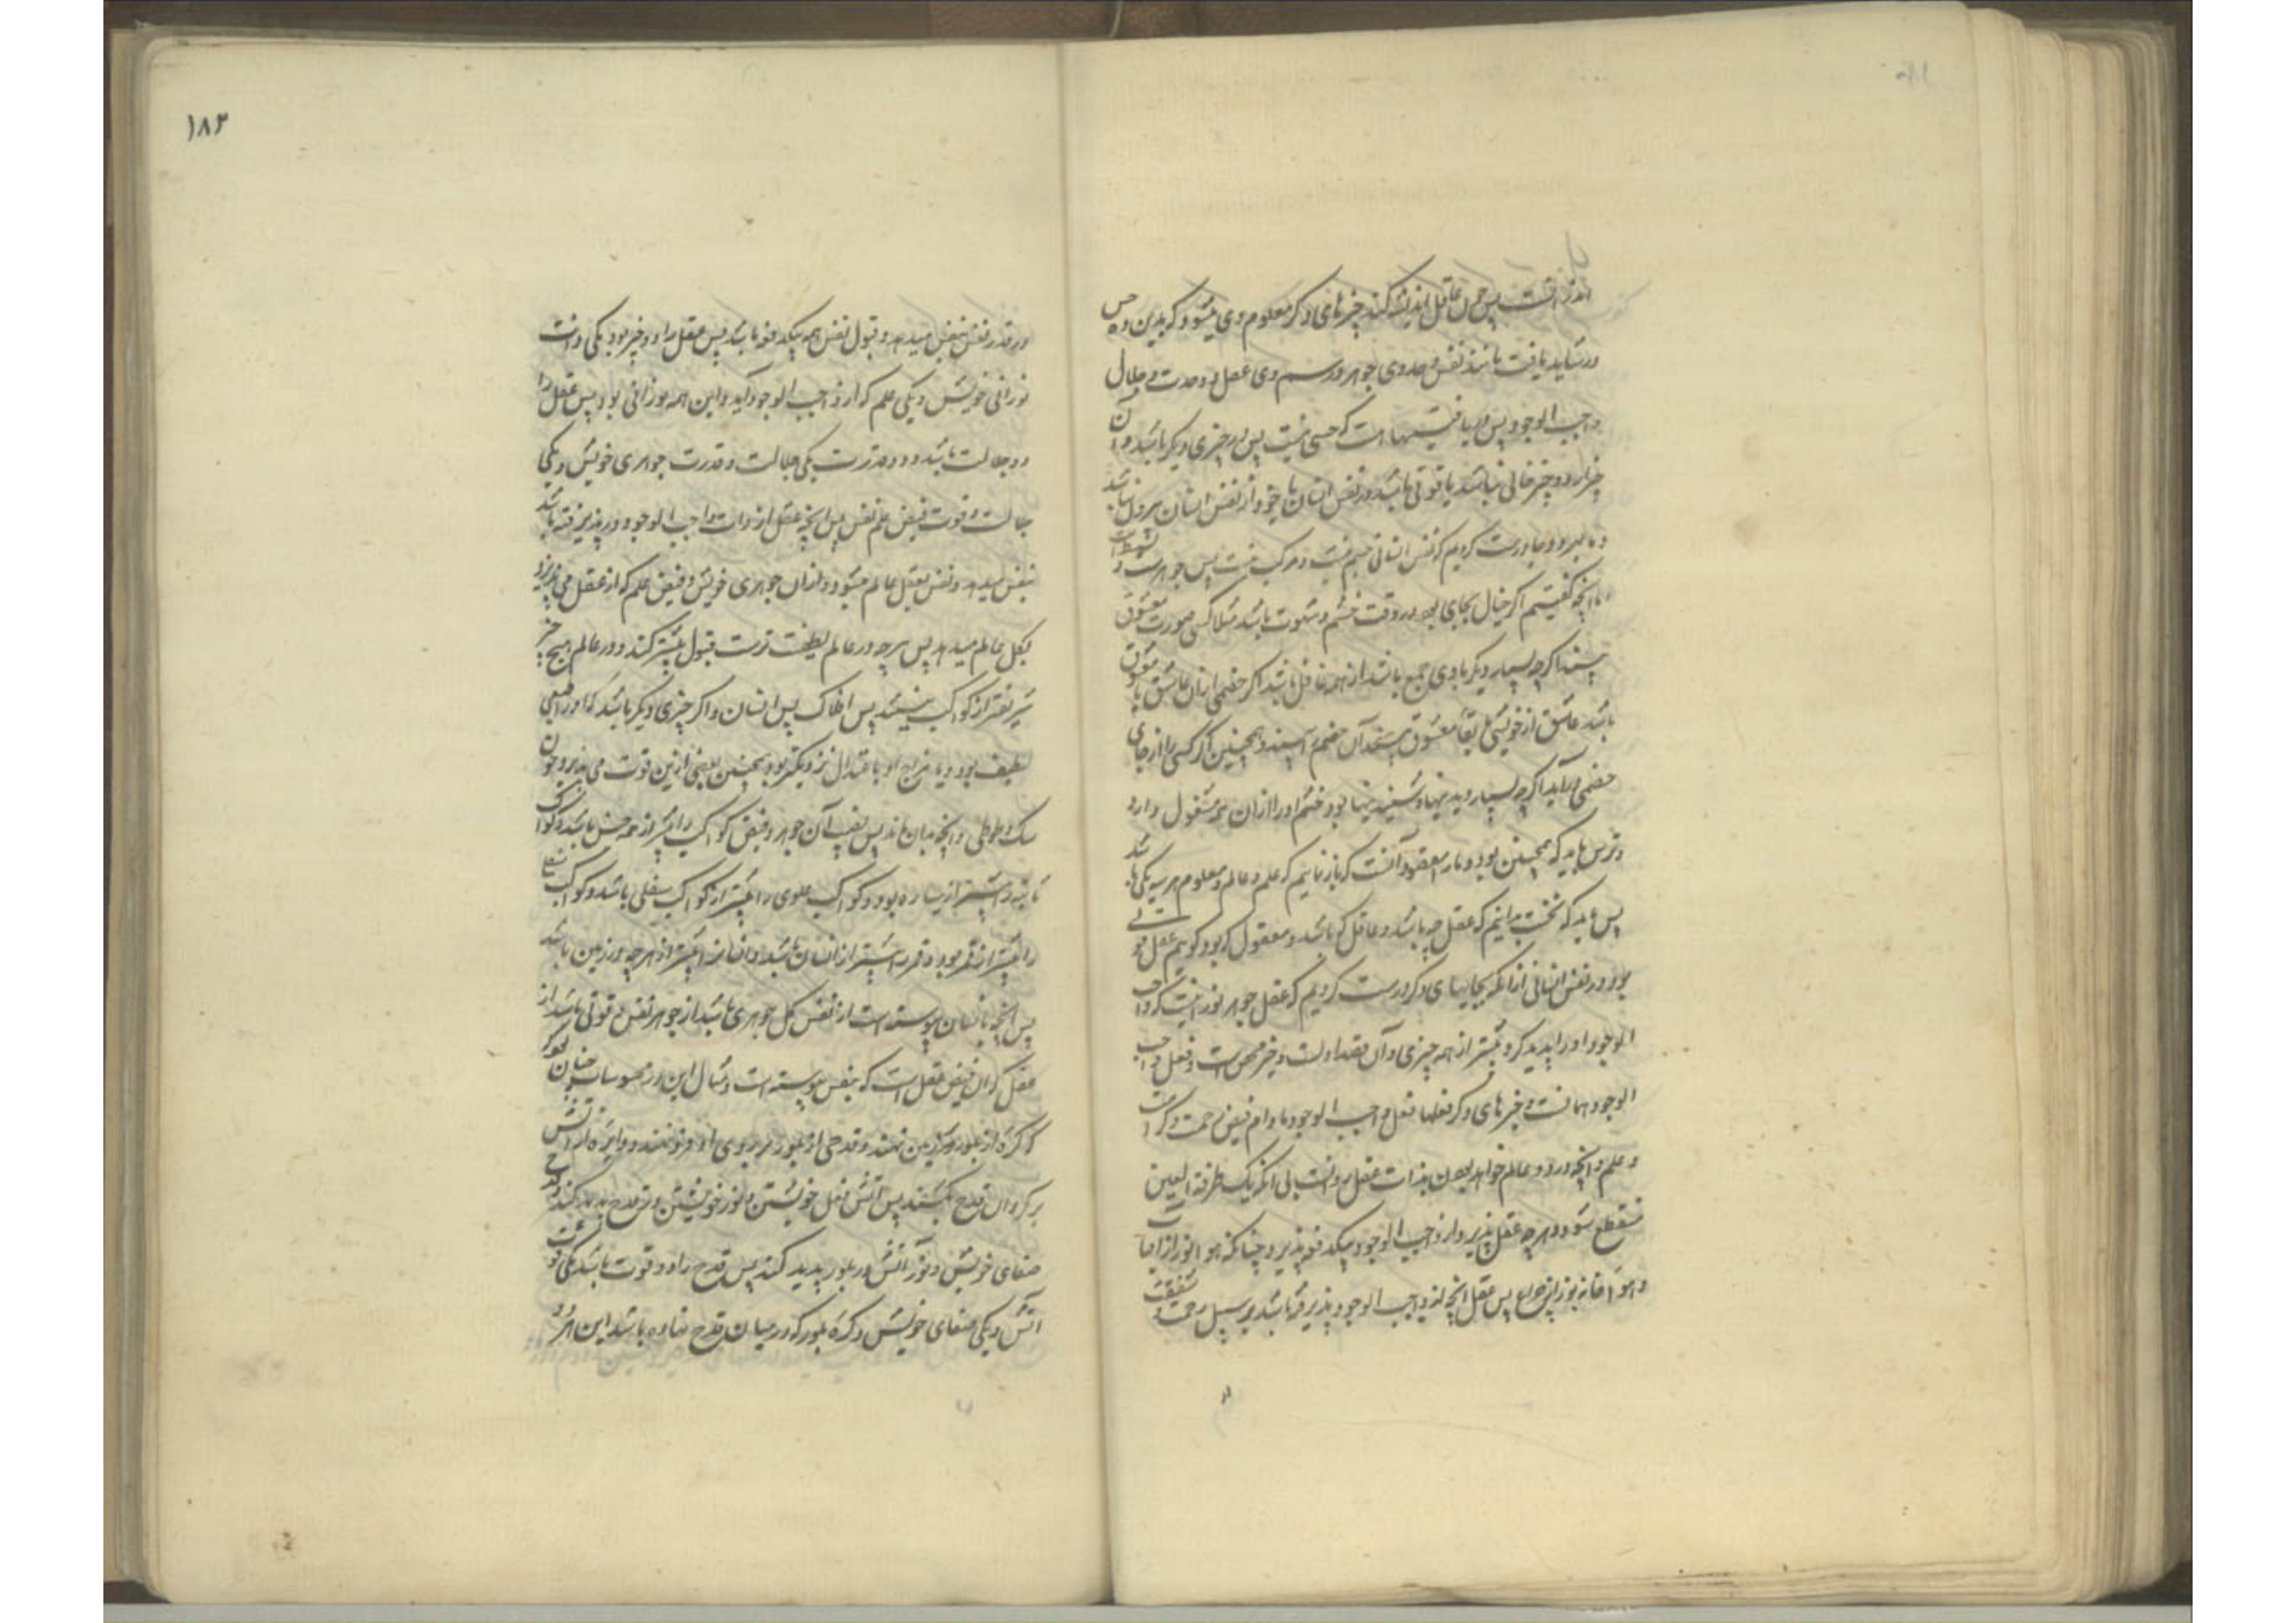 اندر است پس چون عاقل اندیشه کند چیزهای دگر معلوم وی میشود که بدین ده حس
درنشاید یافت مانند نفس و حدوی جوهر و رسم وی عقل و وحدت و جلال
واجب الوجود پس دریافت اینها است که حسی نیست پس در چیزی دیگر باشد و آن
چیز از دو چیز خالی نباشد یا قوتی باشد در نفس انسان یا خود از نفس انسان بیرون باشد
و ما درست کردیم که نفس انسانی جسم نیست و مرکب نیست پس جوهرست و
آنچه گفتیم اگر خیال بجای بود در وقت خشم و شهوت باشد مثلا کسی صورت معشوق
بیند اگرچه بسیار دیگر با وی جمع باشد از همه غافل باشد اگر خصمی از آن عاشق با معشوق
باشد عاشق از خویشتن بقا معشوق بیند آن خصم را بیند و همچنین اگر کسی را از جای
خصمی درآید اگرچه بسیار دیدنیها و شنیدنیها بود خشم او را از آن همه مشغول دارد
و ترس باید که همچنین بود و ما را مقصود آنست که باز نماییم که علم و عالم و معلوم هر سه یکی باشد
پس باید که نخست بدانیم که عقل چه باشد و عاقل که باشد و معقول که بود گوییم عقل
بود در نفس انسانی از آنکه بجایهای دگر درست کردیم که عقل جوهر نورانیست که واجب
الوجود او را پدید کرد بیشتر از همه چیزی و آن مقدار است و خیر محض است و فعل واجب
الوجود همانست و خیرهای دگر فعلها فعل واجب الوجود مادام فیض رحمت و کرامت
و علم و آنچه در دو عالم خواهد بودن بذات عقل است بی آنکه یک طرفة العین
منقطع شود و هرچه عقل پذیرد از واجب الوجود بیکدفعه پذیرد چنانکه هوا نور از آفتاب
و هوا خانه نورانی پس عقل آنچه از واجب الوجود پذیرفته باشد بر سبیل رحمت و شفقت
۱۸۳
در قدر نفس بنفس میدهد و قبول نفس هم بیکدفعه باشد پس عقل را دو چیز بود یکی ذات
نورانی خویش و یکی علم که از واجب الوجود آید و این همه نورانی بود پس عقل را
دو جلالت باشد و دو قدرت یکی جلالت و قدرت جوهری خویش و یکی
جلالت و قوت فیض علم نفس پس آنچه عقل از ذات واجب الوجود درپذیرفته باشد
بنفس میدهد و نفس بعقل عالم میشود و از آن جوهری خویش و فیض علم که از عقل می‌پذیرد
بکل عالم میدهد پس هرچه در عالم لطیف‌ترست قبول بیشتر کند و در عالم هیچ چیز
شریفتر از کواکب نیستند پس افلاک پس انسان و اگر چیزی دیگر باشد که او را طبعی
لطیف بود و یا مزاج او باعتدال نزدیکتر بود همچنین بعضی ازین قوت می‌پذیرد چون
سگ و طوطی و آنچه بدان ماند پس نصیب آن جوهر و فیض کواکب را بیشتر از همه جنس باشد و کواکب
ثابته را بیشتر از سیاره بود و کواکب علوی را بیشتر از کواکب سفلی باشد و کواکب سفلی
را بیشتر از قمر بود و قمر را بیشتر از انسان باشد و انسان را بیشتر از هرچه در زمین باشد
پس آنچه بانسان پیوسته است از نفس کل جوهری باشد از جوهر نفس و قوتی باشد از
عقل که آن فیض عقل است که بنفس پیوسته است و مثال این در محسوسات چنان بود
که کره از بلور بر زمین نهند و قدحی از بلور بر روی او فرو نهند و دایره از آتش
بر گرد آن قدح بکشند پس آتش فعل خویشتن و نور خویشتن در قدح پدید کند و قدح
صفای خویش و نور آتش در بلور پدید کند پس قدح را دو قوت باشد یکی قوت
آتش و یکی صفای خویش و کره بلور که در میان قدح نهاده باشد این هر دو